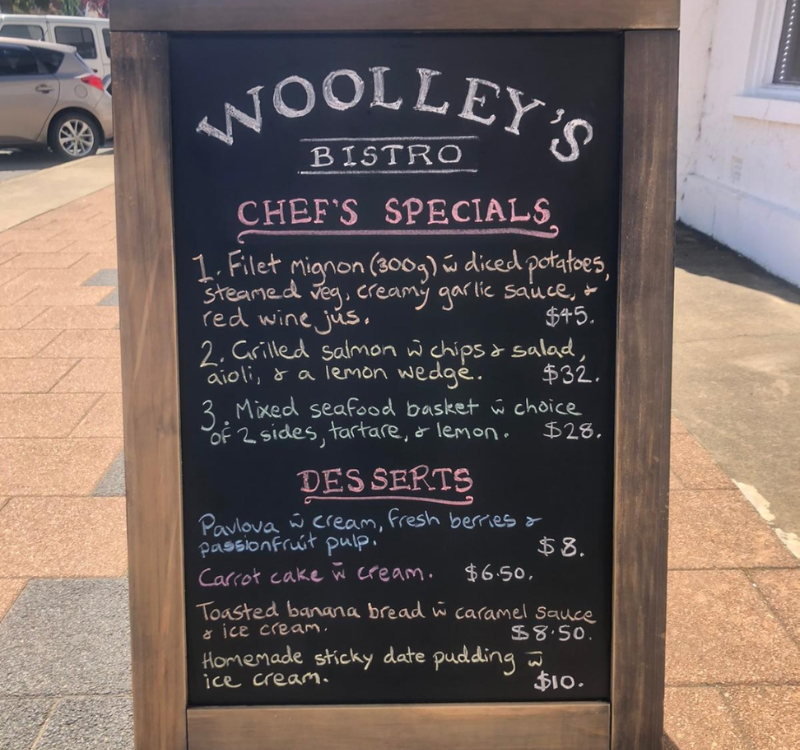 WOOLLEY'S
BISTRO
CHEF'S SPECIALS
1. Filet mignon (300g) w̄ diced potatoes,
steamed veg, creamy garlic sauce, &
red wine jus. $45.
2. Grilled salmon w̄ chips & salad,
aioli, & a lemon wedge. $32.
3. Mixed seafood basket w̄ choice
of 2 sides, tartare, & lemon. $28.
DESSERTS
Pavlova w̄ cream, fresh berries &
passionfruit pulp. $8.
Carrot cake w̄ cream. $6.50.
Toasted banana bread w̄ caramel sauce
& ice cream. $8.50.
Homemade sticky date pudding w̄
ice cream. $10.